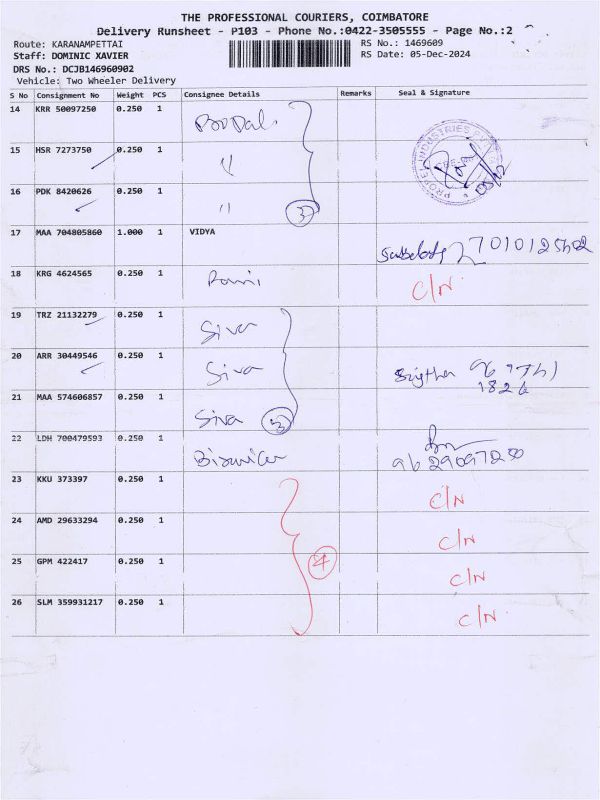 THE PROFESSIONAL COURIERS, COIMBATORE
Delivery Runsheet - P103 - Phone No.:0422-3505555 - Page No.:2
Route: KARANAMPETTAI RS No.: 1469609
Staff: DOMINIC XAVIER RS Date: 05-Dec-2024
DRS No.: DCJB146960902
Vehicle: Two Wheeler Delivery
S No Consignment No Weight PCS Consignee Details Remarks Seal & Signature
14 KRR 50097250 0.250 1
15 HSR 7273750 0.250 1 "
16 PDK 8420626 0.250 1 "
3
PROPEL INDUSTRIES
17 MAA 704805860 1.000 1 VIDYA
18 KRG 4624565 0.250 1 C/N
19 TRZ 21132279 0.250 1 Siva
20 ARR 30449546 0.250 1 Siva
21 MAA 574606857 0.250 1 Siva 3
22 LDH 700479593 0.250 1
23 KKU 373397 0.250 1 C/N
24 AMD 29633294 0.250 1 C/N
25 GPM 422417 0.250 1 4 C/N
26 SLM 359931217 0.250 1 C/N